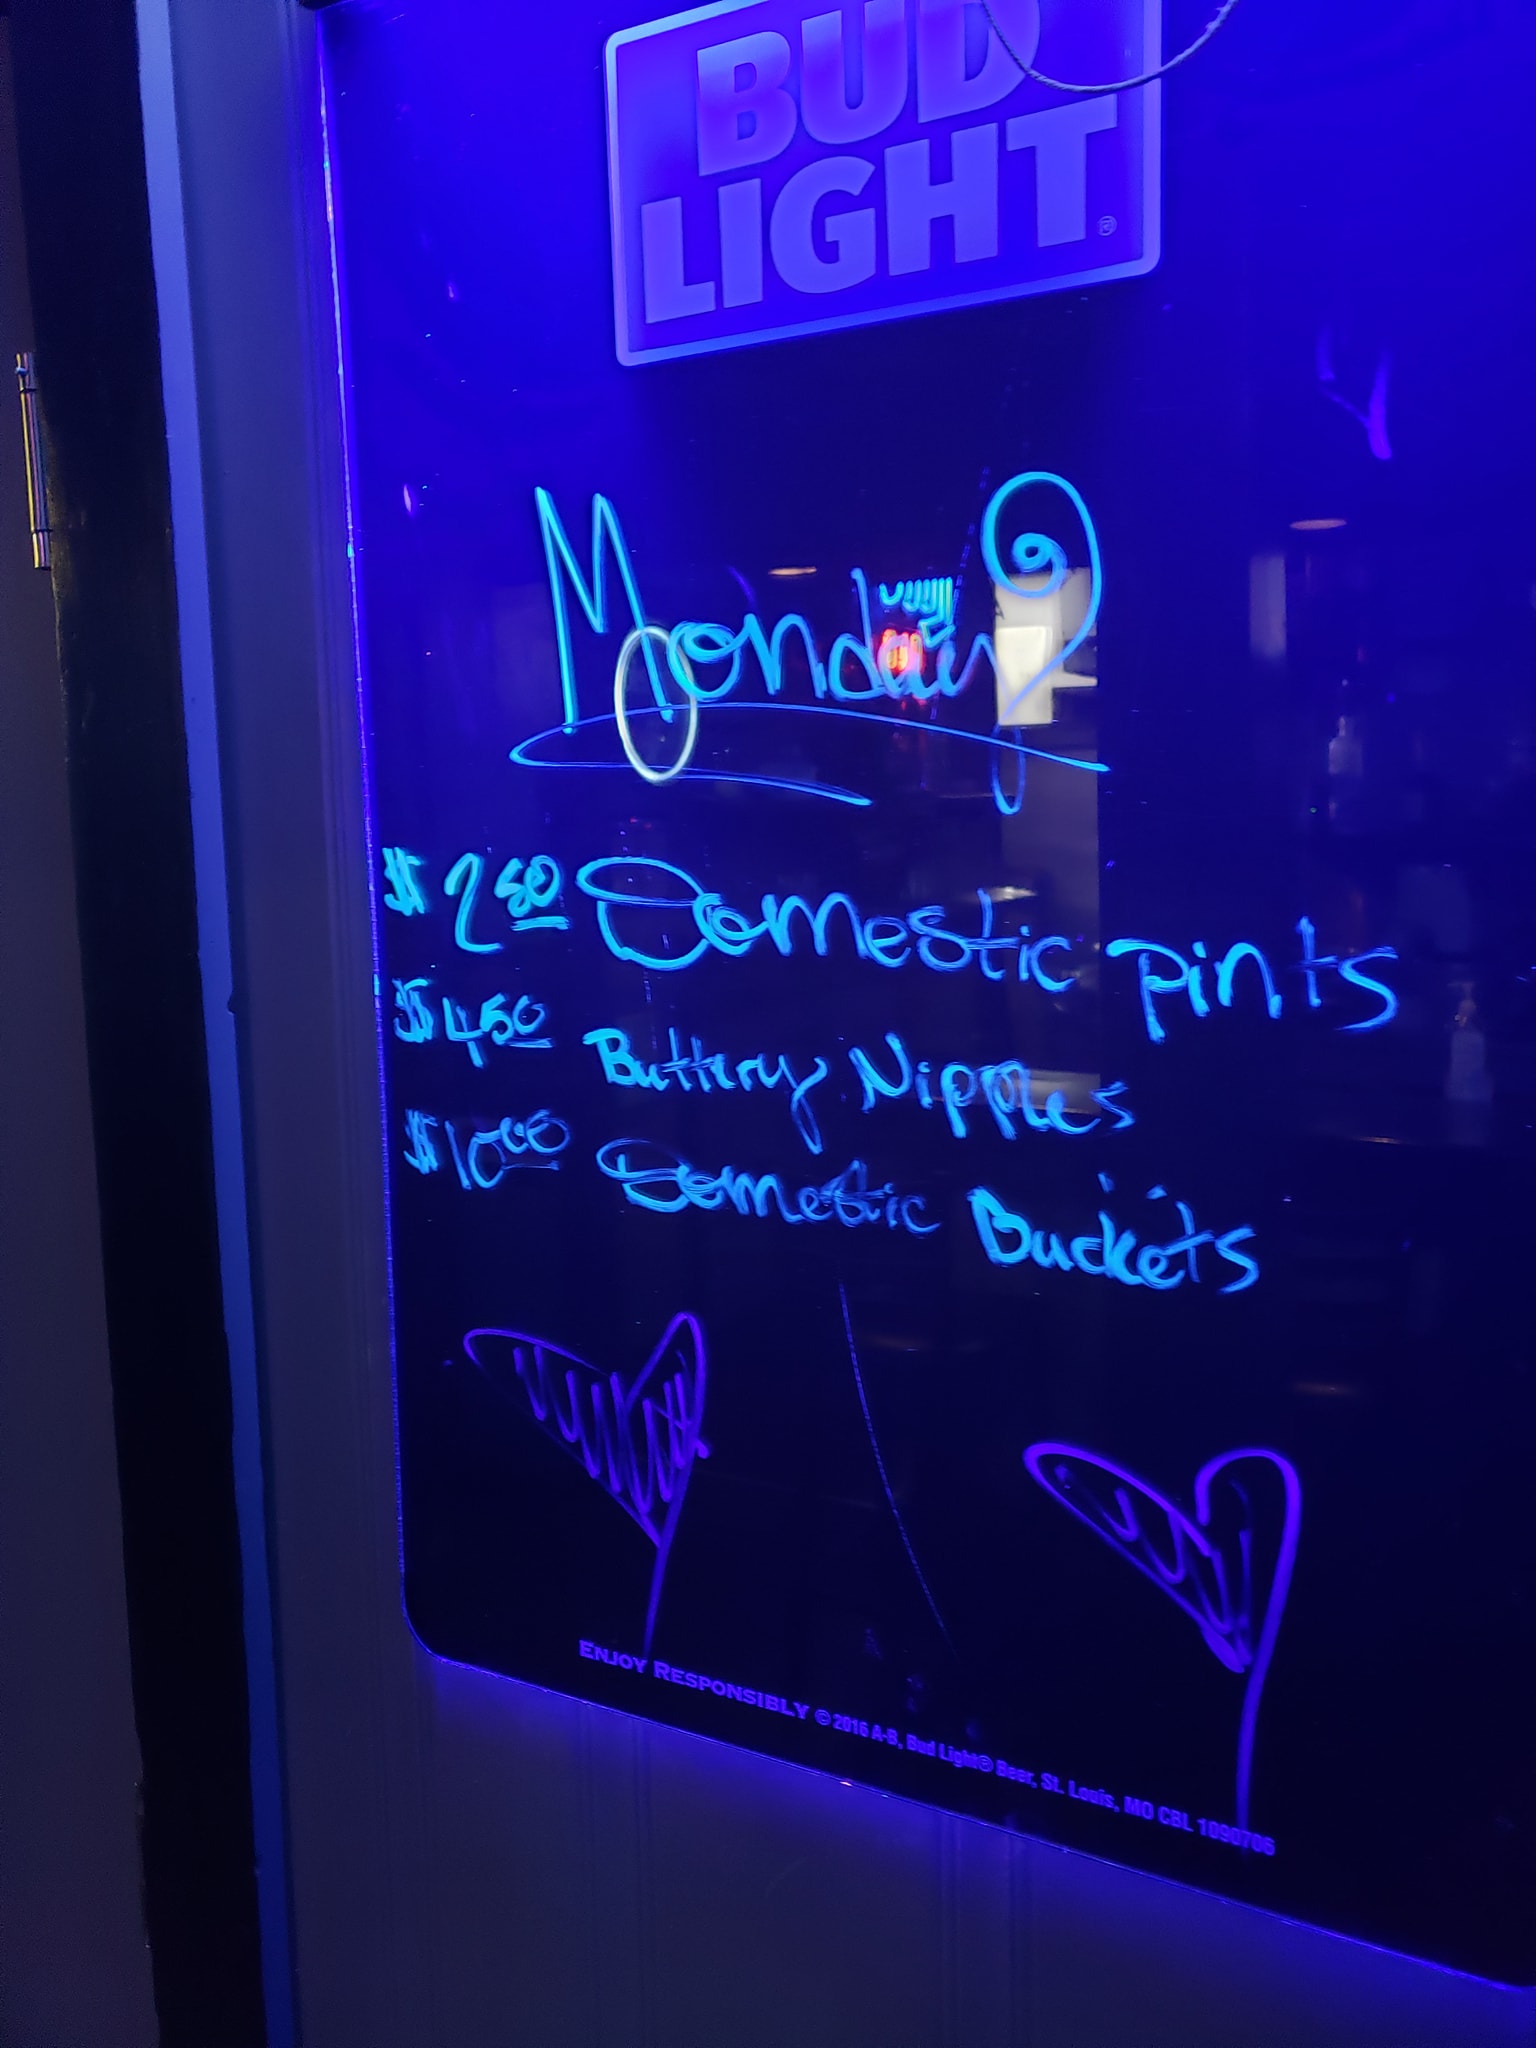 BUD
LIGHT®
Monday
$2.50 Domestic pints
$4.50 Buttery Nipples
$10.00 Domestic Buckets
ENJOY RESPONSIBLY © 2016 A-B, Bud Light® Beer, St. Louis, MO CBL 1090706